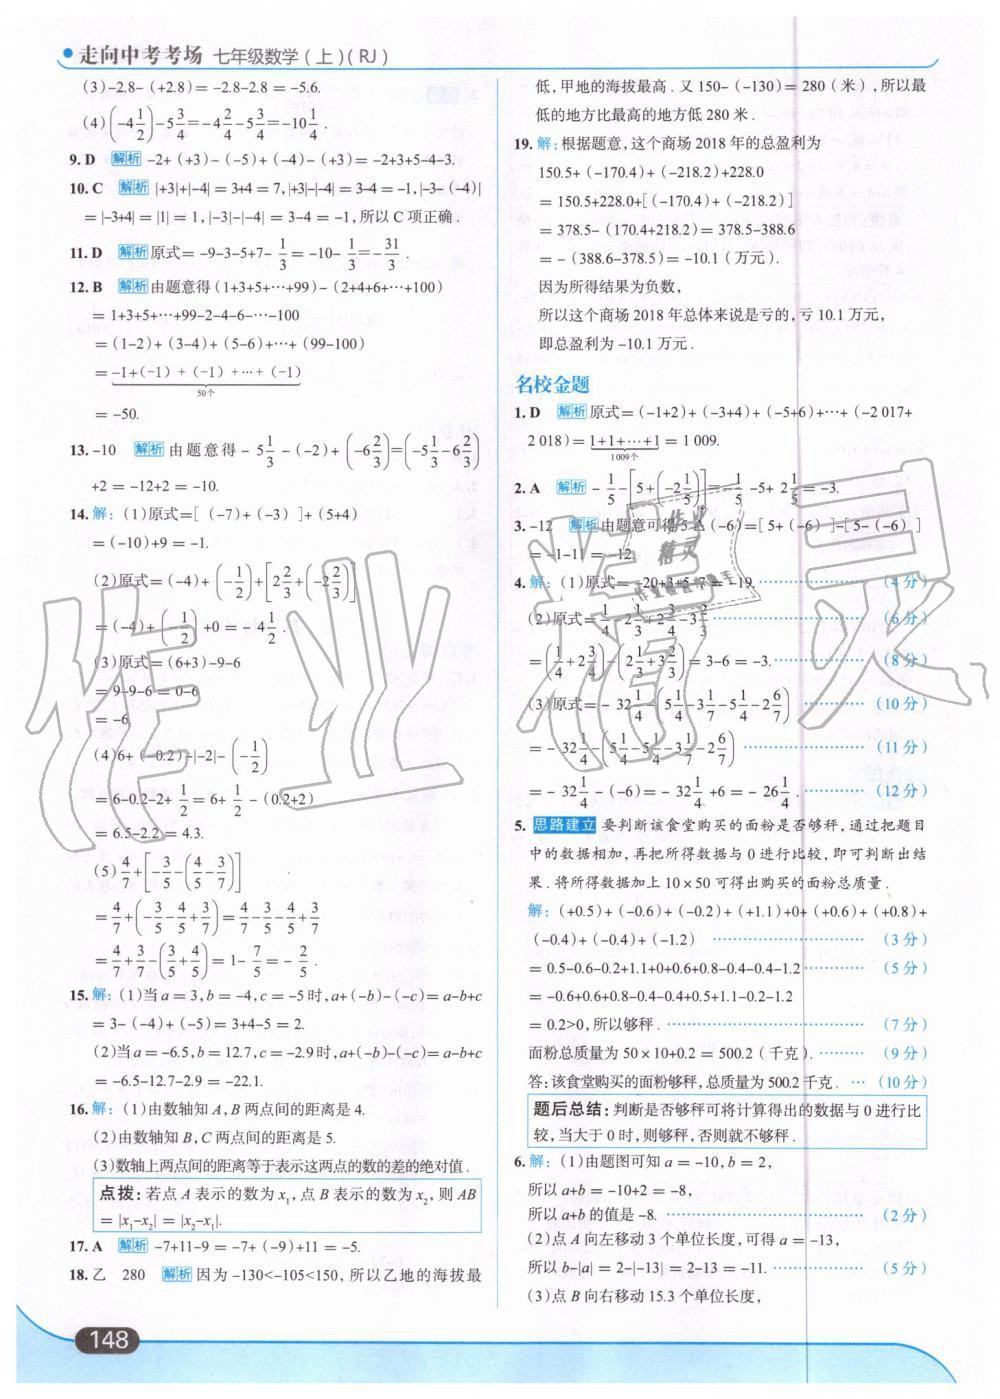 走向中考考场 七年级数学(上)(RJ)
(3)-2.8-(+2.8)=-2.8-2.8=-5.6.
(4)(-4 1/2)-5 3/4=-4 2/4-5 3/4=-10 1/4.
9.D 解析 -2+(+3)-(-5)+(-4)-(+3)=-2+3+5-4-3.
10.C 解析 |+3|+|-4|=3+4=7,|+3|-|-4|=3-4=-1,|-3-(-4)|
=|-3+4|=|1|=1,|-3|-|-4|=3-4=-1,所以C项正确.
11.D 解析 原式=-9-3-5+7-1/3=-10-1/3=-31/3.
12.B 解析 由题意得(1+3+5+…+99)-(2+4+6+…+100)
=1+3+5+…+99-2-4-6-…-100
=(1-2)+(3-4)+(5-6)+…+(99-100)
=-1+(-1)+(-1)+…+(-1)
50个
=-50.
13.-10 解析 由题意得-5 1/3-(-2)+(-6 2/3)=(-5 1/3-6 2/3)
+2=-12+2=-10.
14.解:(1)原式=[(-7)+(-3)]+(5+4)
=(-10)+9=-1.
(2)原式=(-4)+(-1/2)+[2 2/3+(-2 2/3)]
=(-4)+(-1/2)+0=-4 1/2.
(3)原式=(6+3)-9-6
=9-9-6=0-6
=-6.
(4)6+(-0.2)-|-2|-(-1/2)
=6-0.2-2+1/2=6+1/2-(0.2+2)
=6.5-2.2=4.3.
(5)4/7+[-3/5-(4/5-3/7)]
=4/7+(-3/5-4/5+3/7)=4/7-3/5-4/5+3/7
=4/7+3/7-(3/5+4/5)=1-7/5=-2/5.
15.解:(1)当a=3,b=-4,c=-5时,a+(-b)-(-c)=a-b+c
=3-(-4)+(-5)=3+4-5=2.
(2)当a=-6.5,b=12.7,c=-2.9时,a+(-b)-(-c)=a-b+c
=-6.5-12.7-2.9=-22.1.
16.解:(1)由数轴知A,B两点间的距离是4.
(2)由数轴知B,C两点间的距离是5.
(3)数轴上两点间的距离等于表示这两点的数的差的绝对值.
点拨:若点A表示的数为x₁,点B表示的数为x₂,则AB
=|x₁-x₂|=|x₂-x₁|.
17.A 解析 -7+11-9=-7+(-9)+11=-5.
18.乙 280 解析 因为-130<-105<150,所以乙地的海拔最
148
低,甲地的海拔最高.又150-(-130)=280(米),所以最
低的地方比最高的地方低280米.
19.解:根据题意,这个商场2018年的总盈利为
150.5+(-170.4)+(-218.2)+228.0
=150.5+228.0+[(-170.4)+(-218.2)]
=378.5-(170.4+218.2)=378.5-388.6
=-(388.6-378.5)=-10.1(万元).
因为所得结果为负数,
所以这个商场2018年总体来说是亏的,亏10.1万元,
即总盈利为-10.1万元.
名校金题
1.D 解析 原式=(-1+2)+(-3+4)+(-5+6)+…+(-2 017+
2 018)=1+1+…+1=1 009.
1009个
2.A 解析 -1/5-[5+(-2 1/5)]=-1/5-5+2 1/5=-3.
3.-12 解析 由题意可得5△(-6)=[5+(-6)]-[5-(-6)]
=-1-11=-12.
4.解:(1)原式=-20+3+5-7=-19.…(4分)
(2)原式=1/4-2 1/3+2 3/4-3 2/3…(6分)
=(1/4+2 3/4)-(2 1/3+3 2/3)=3-6=-3.…(8分)
(3)原式=-32 1/4-(5 1/4-3 1/7-5 1/4-2 6/7)…(10分)
=-32 1/4-(5 1/4-5 1/4-3 1/7-2 6/7)…(11分)
=-32 1/4-(-6)=-32 1/4+6=-26 1/4.…(12分)
5.思路建立 要判断该食堂购买的面粉是否够秤,通过把题目
中的数据相加,再把所得数据与0进行比较,即可判断出结
果.将所得数据加上10×50可得出购买的面粉总质量.
解:(+0.5)+(-0.6)+(-0.2)+(+1.1)+0+(+0.6)+(+0.8)+
(-0.4)+(-0.4)+(-1.2)…(3分)
=0.5-0.6-0.2+1.1+0+0.6+0.8-0.4-0.4-1.2…(5分)
=-0.6+0.6+0.8-0.4-0.4+0.5+1.1-0.2-1.2
=0.2>0,所以够秤.…(7分)
面粉总质量为50×10+0.2=500.2(千克).…(9分)
答:该食堂购买的面粉够秤,总质量为500.2千克.…(10分)
题后总结:判断是否够秤可将计算得出的数据与0进行比
较,当大于0时,则够秤,否则就不够秤.
6.解:(1)由题图可知a=-10,b=2,
所以a+b=-10+2=-8,
所以a+b的值是-8.…(2分)
(2)点A向左移动3个单位长度,可得a=-13,
所以b-|a|=2-|-13|=2-13=-11.…(5分)
(3)点B向右移动15.3个单位长度,
作业精灵